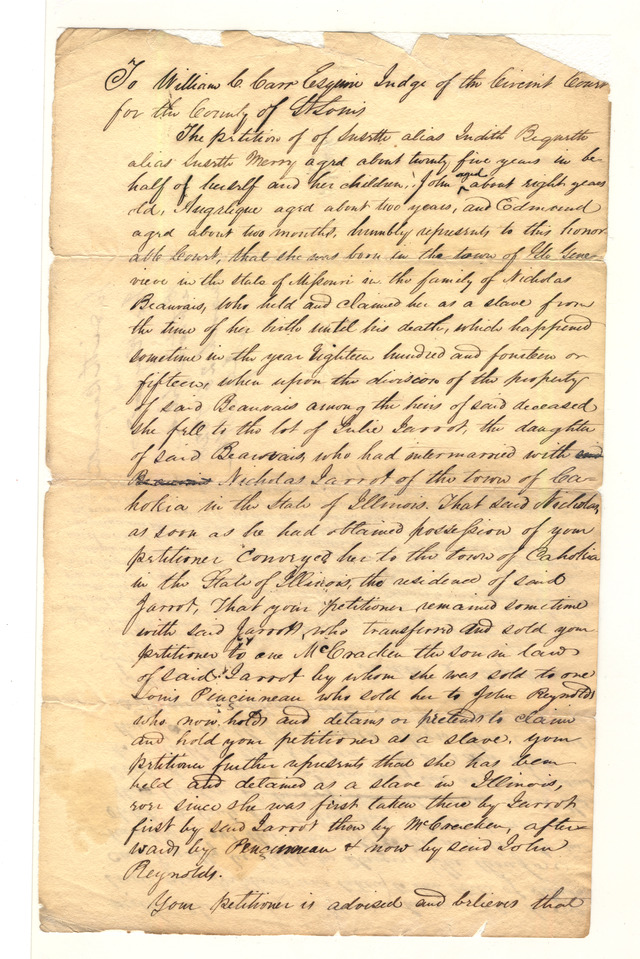 To William C Carr Esquire Judge of the Circuit Court
for the County of St Louis
The petition of of Susette alias Judith Bequette
alias Susette Merry aged about twenty five years in be-
half of herself and her children, John aged about eight years
old, Angelique aged about two years, and Edmond
aged about two months, humbly represents to this honor-
able Court, that she was born in the town of Ste Gene-
vieve in the State of Missouri in the family of Nicholas
Beauvais, who held and claimed her as a slave from
the time of her birth until his death, which happened
sometime in the year Eighteen hundred and fourteen or
fifteen, when upon the division of the property
of said Beauvais among the heirs of said deceased
she fell to the lot of Julie Jarrot, the daughter
of said Beauvais, who had intermarried with and
Beauvais Nicholas Jarrot of the town of Ca-
hokia in the State of Illinois. That said Nicholas,
as soon as he had obtained possession of your
petitioner conveyed her to the town of Cahokia
in the State of Illinois, the residence of said
Jarrot, That your petitioner remained sometime
with said Jarrot, who transferred and sold your
petitioner to one McCracken the son in law
of said Jarrot by whom she was sold to one
Louis Pencinneau who sold her to John Reynolds
who now holds and detains or pretends to claim
and hold your petitioner as a slave. your
petitioner further represents that she has been
held and detained as a slave in Illinois,
ever since she was first taken there by Jarrot
first by said Jarrot then by McCracken, after-
wards by Pencinneau & now by said John
Reynolds.
Your petitioner is advised and believes that